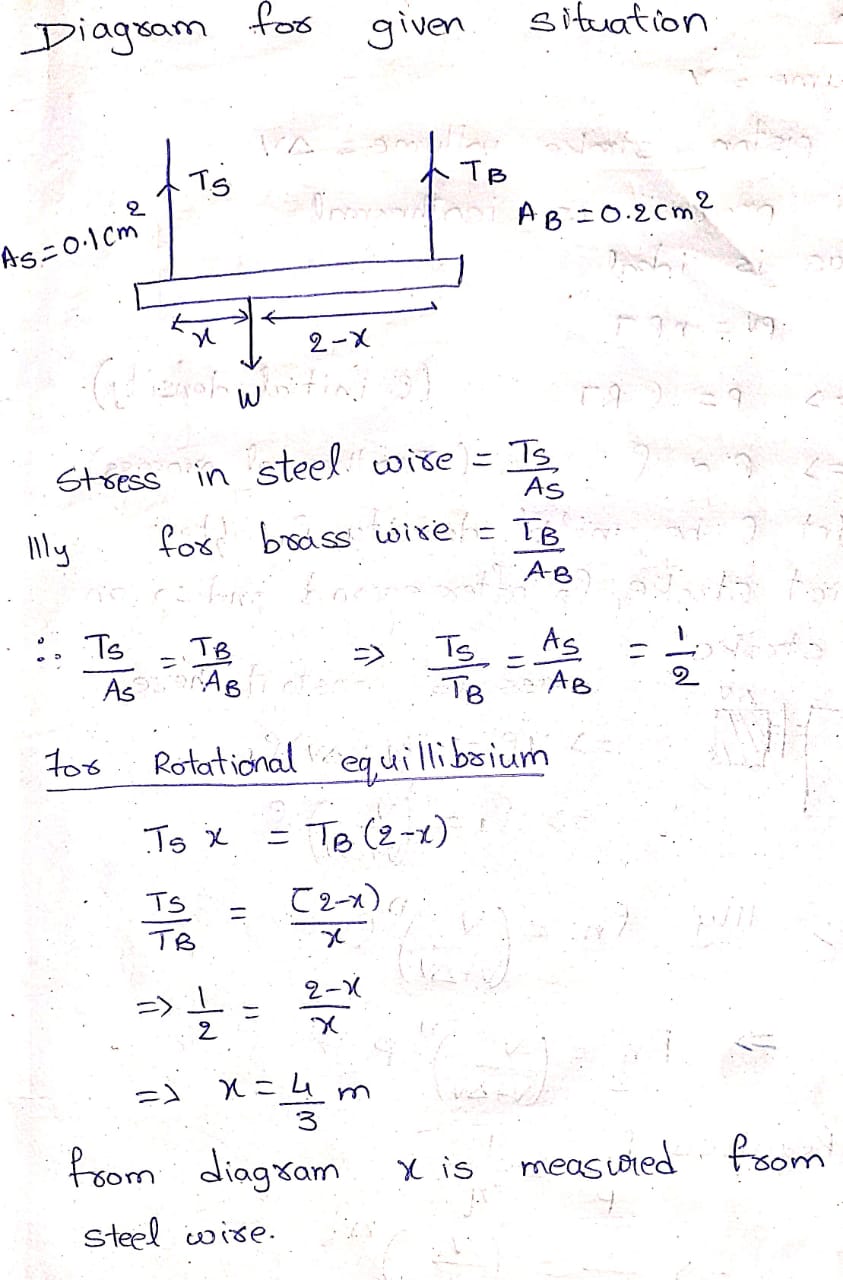 Diagram for given situation
TS
TB
AS = 0.1 cm²
AB = 0.2 cm²
x
2-x
W
Stress in steel wire = TS/AS
lllly for brass wire = TB/AB
∴ TS/AS = TB/AB ⇒ TS/TB = AS/AB = 1/2
for Rotational equillibrium
TS x = TB (2-x)
TS/TB = (2-x)/x
=> 1/2 = 2-x/x
=> x = 4/3 m
from diagram x is measured from
steel wire.